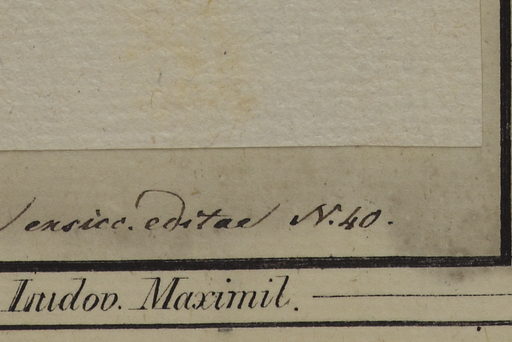 ensicc. editae N. 40.
Ludov. Maximil.